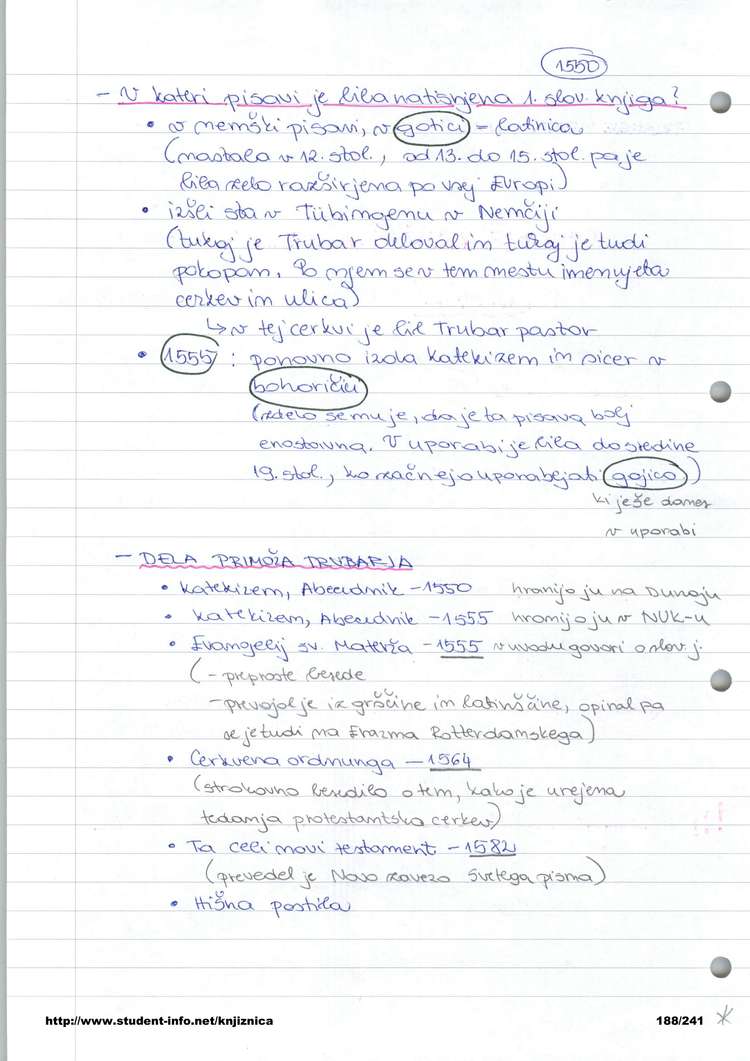 1550
- V kateri pisavi je bila natisnjena 1. slov. knjiga?
• v nemški pisavi, v gotici = latinica
(nastala v 12. stol., od 13. do 15. stol. pa je
bila zelo razširjena po vsej Evropi)
• izšli sta v Tübingenu v Nemčiji
(tukaj je Trubar deloval in tukaj je tudi
pokopan. Po njem se v tem mestu imenujeta
cerkev in ulica)
↳ v tej cerkvi je bil Trubar pastor
• 1555 : ponovno izda katekizem in sicer v
bohoričici
(zdelo se mu je, da je ta pisava bolj
enostavna. V uporabi je bila do sredine
19. stol., ko začnejo uporabljati gajico)
ki je še danes
v uporabi
- DELA PRIMOŽA TRUBARJA
• Katekizem, Abecednik - 1550 hranijo ju na Dunaju
• Katekizem, Abecednik - 1555 hranijo ju v NUK-u
• Evangelij sv. Matevža - 1555 v uvodu govori o slov. j.
(- preproste besede
- prevajal je iz grščine in latinščine, opiral pa
se je tudi na Erazma Rotterdamskega)
• Cerkvena ordnunga - 1564
(strokovno besedilo o tem, kako je urejena
tedanja protestantska cerkev)
• Ta celi novi testament - 1582
(prevedel je Novo zavezo Svetega pisma)
• Hišna postila
http://www.student-info.net/knjiznica 188/241